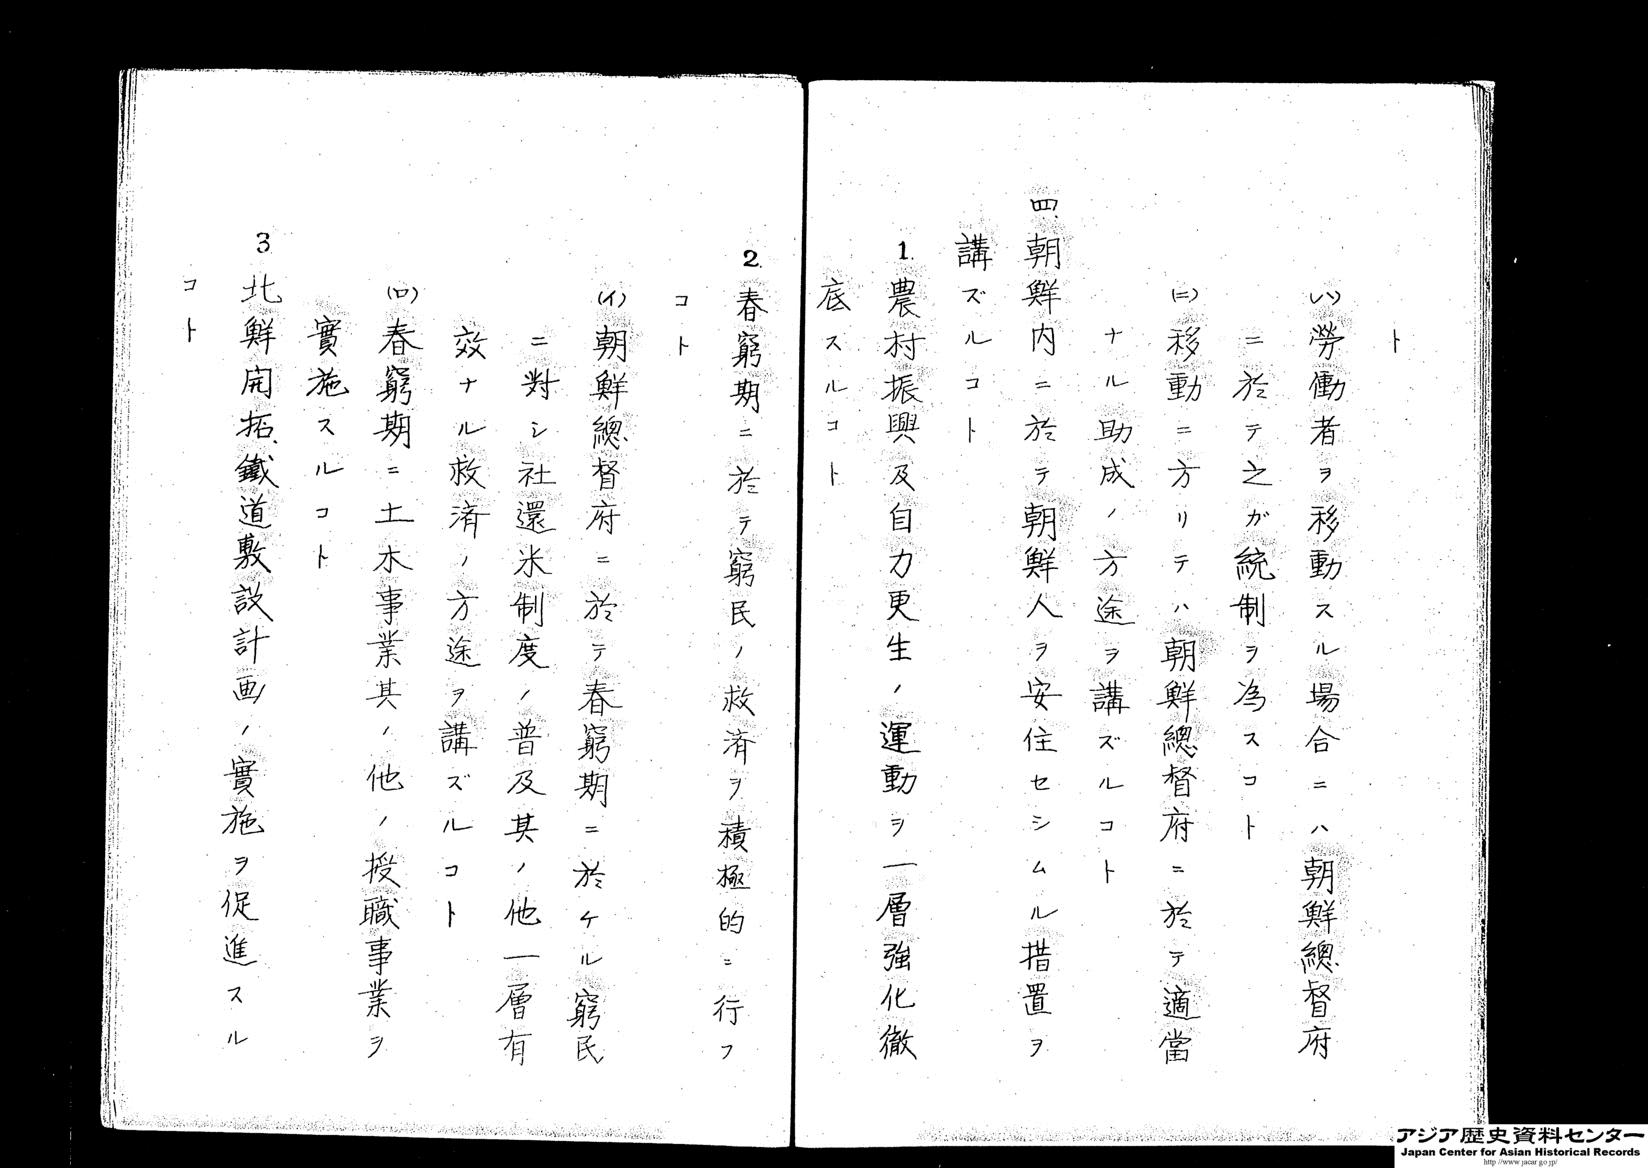 ト
(ハ)勞働者ヲ移動スル場合ニハ朝鮮總督府
ニ於テ之ガ統制ヲ為スコト
(ニ)移動ニ方リテハ朝鮮總督府ニ於テ適當
ナル助成ノ方途ヲ講ズルコト
四、朝鮮内ニ於テ朝鮮人ヲ安住セシムル措置ヲ
講ズルコト
1.農村振興及自力更生ノ運動ヲ一層強化徹
底スルコト
2.春窮期ニ於テ窮民ノ救済ヲ積極的ニ行フ
コト
(イ)朝鮮總督府ニ於テ春窮期ニ於ケル窮民
ニ對シ社還米制度ノ普及其ノ他一層有
效ナル救済ノ方途ヲ講ズルコト
(ロ)春窮期ニ土木事業其ノ他ノ授職事業ヲ
實施スルコト
3.北鮮開拓、鐵道敷設計画ノ實施ヲ促進スル
コト
アジア歴史資料センター
Japan Center for Asian Historical Records
http://www.jacar.go.jp/